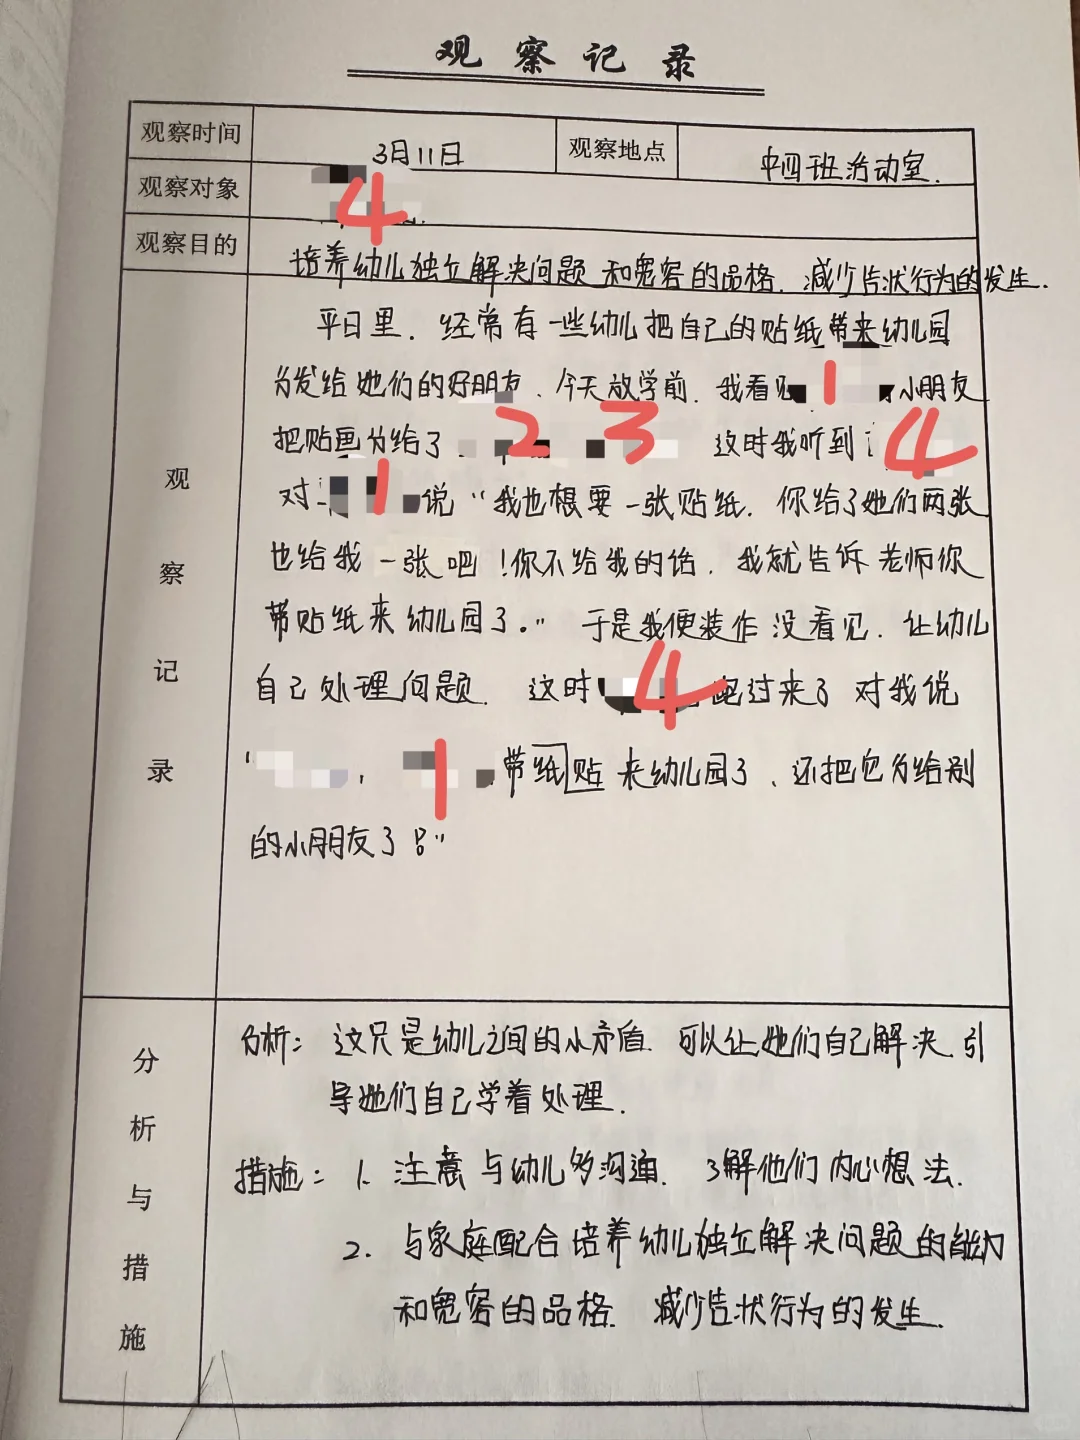 观察记录
观察时间 3月11日 观察地点 中四班活动室.
观察对象 4
观察目的 培养幼儿独立解决问题和宽容的品格.减少告状行为的发生.
观察记录
平日里.经常有一些幼儿把自己的贴纸带来幼儿园
分发给她们的好朋友.今天放学前.我看见 1 小朋友
把贴画分给了 2 3 这时我听到 4
对 1 说“我也想要一张贴纸.你给了她们两张
也给我一张吧!你不给我的话.我就告诉老师你
带贴纸来幼儿园了。”于是我便装作没看见.让幼儿
自己处理问题.这时 4 跑过来了对我说
“ , 1 带纸贴来幼儿园了、还把它分给别
的小朋友了!”
分析与措施
分析:这只是幼儿之间的小矛盾.可以让她们自己解决.引
导她们自己学着处理.
措施:1.注意与幼儿多沟通.了解他们内心想法.
2.与家庭配合培养幼儿独立解决问题的能力
和宽容的品格.减少告状行为的发生.